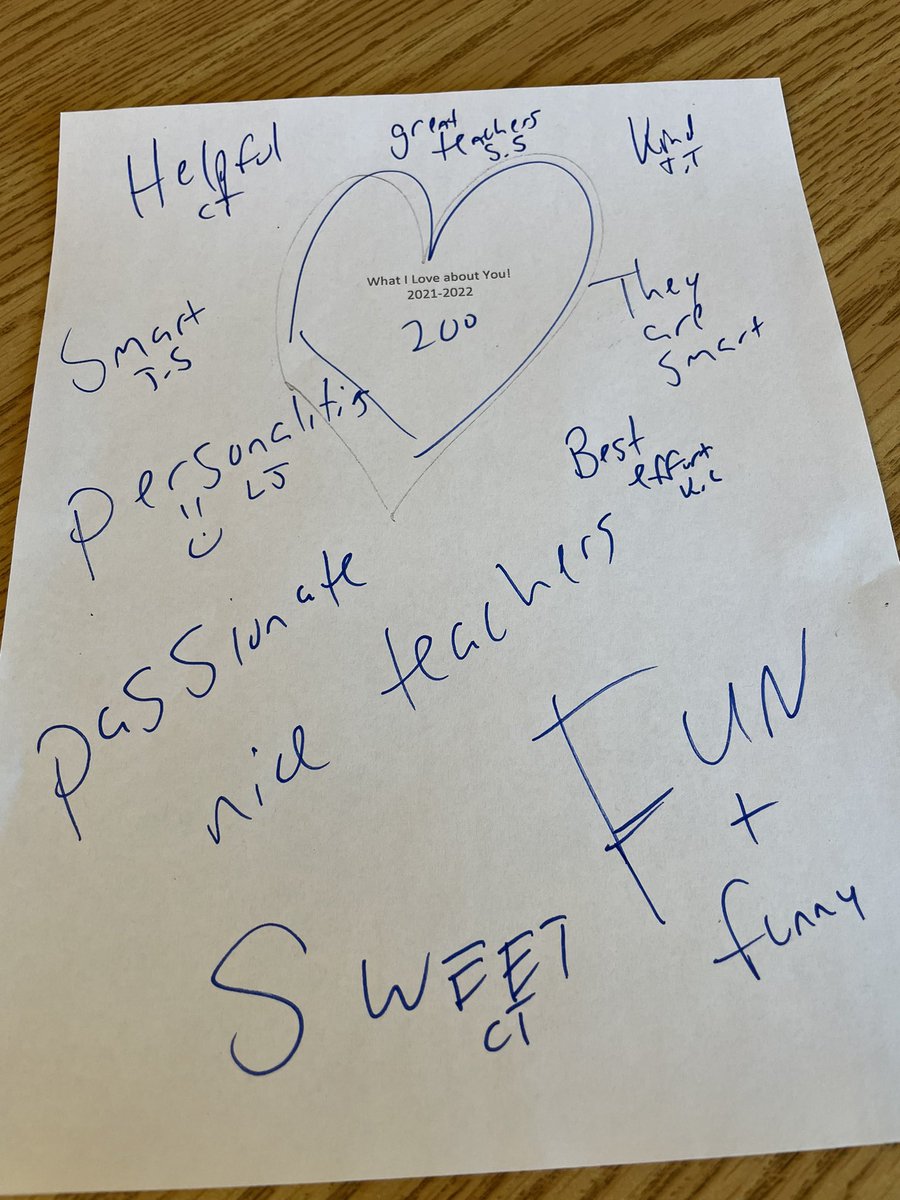 Helpful
CT
great
teachers
S.S
Kind
J.T
What I Love about You!
2021-2022
200
They
are
Smart
Smart
J-S
Personalities
LJ
Best
effort
K.C
passionate
nice teachers
FUN
+
funny
SWEET
CT